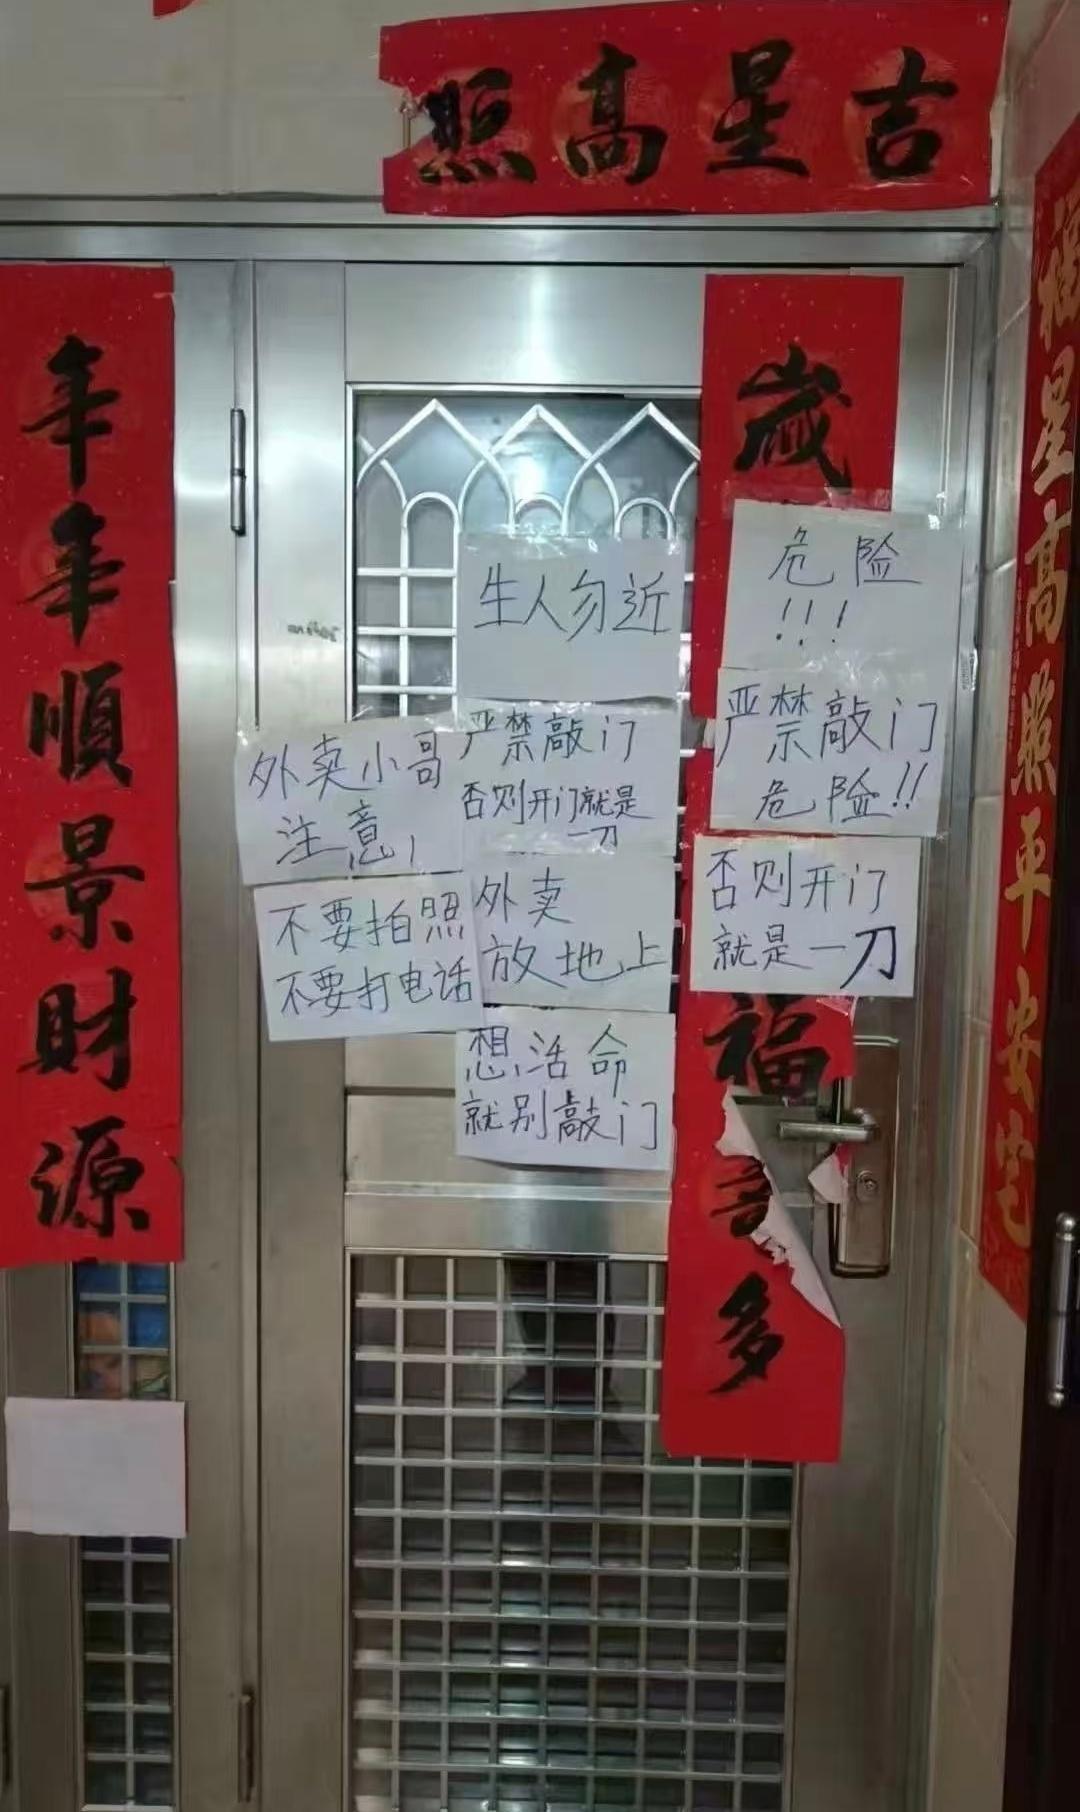 吉星高照
歲
福
多
年年順景財源
福星高照平安宅
生人勿近
危险
!!!
严禁敲门
否则开门就是
一刀
严禁敲门
危险!!
外卖小哥
注意,
不要拍照
不要打电话
外卖
放地上
否则开门
就是一刀
想活命
就别敲门